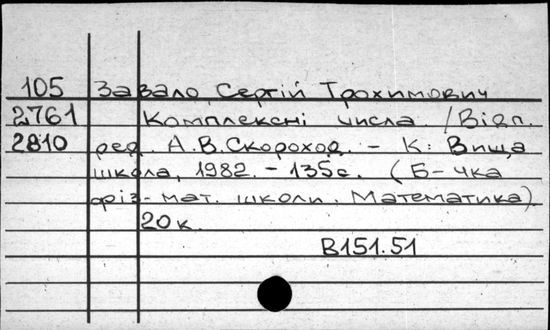 105 Завало, Сергій Трохимович
2761 Комплексні числа. /Відп.
2810 ред. А.В.Скороход. - К: Вища
школа, 1982. - 135с. (Б-чка
фіз-мат. школи. Математика).
20к.
В151.51